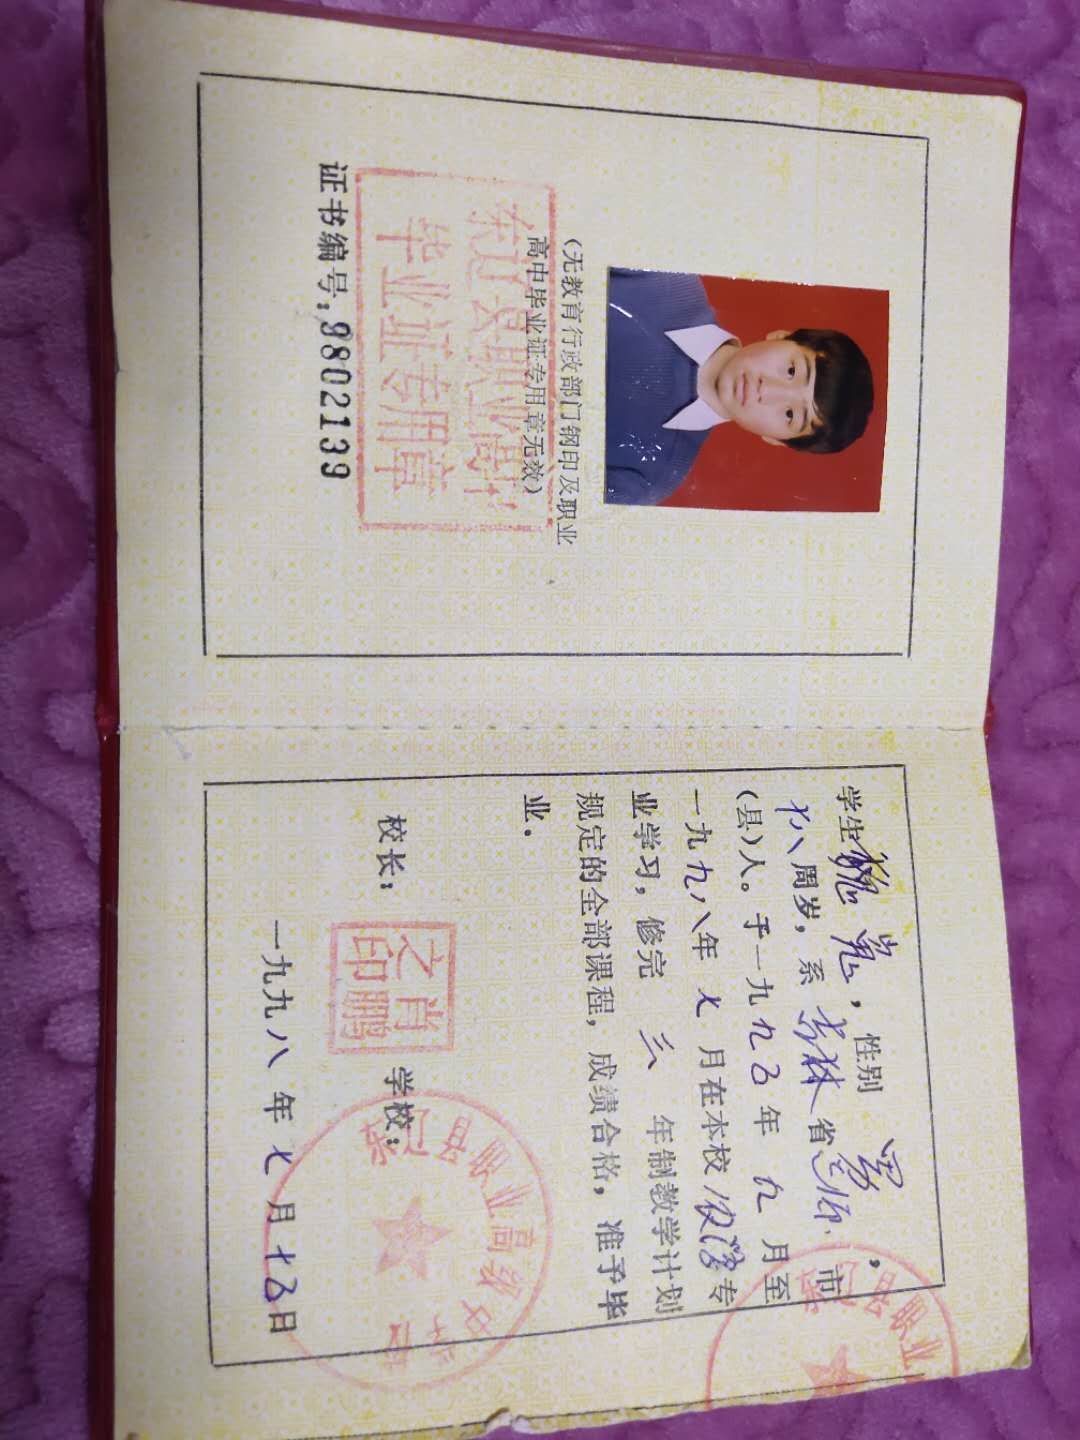 (无教育行政部门钢印及职业
高中毕业证专用章无效)
职业高中
毕业证专用章
证书编号:9802139
学生魏嵬,性别 男,
十八周岁,系吉林省 市
(县)人。于一九九五年九月至
一九九八年七月在本校 专
业学习,修完 三 年制教学计划
规定的全部课程,成绩合格,准予毕
业。
校长:
肖鹏之印
学校:
职业高级中学
一九九八年七月十五日
职业